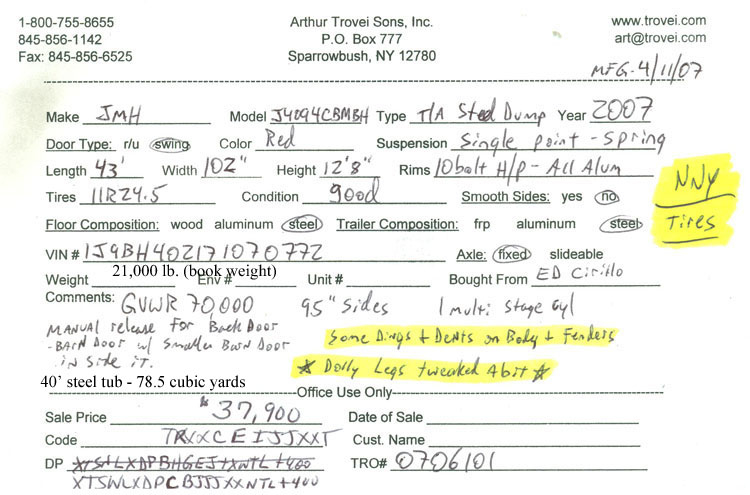 1-800-755-8655 Arthur Trovei Sons, Inc. www.trovei.com
845-856-1142 P.O. Box 777 art@trovei.com
Fax: 845-856-6525 Sparrowbush, NY 12780
MFG-4/11/07
Make JMH Model J4094CBMBH Type T/A Steel Dump Year 2007
Door Type: r/u swing Color Red Suspension Single point - spring
Length 43' Width 102" Height 12'8" Rims 10bolt H/P - All Alum
Tires 11R24.5 Condition good Smooth Sides: yes no
NNY
Tires
Floor Composition: wood aluminum steel Trailer Composition: frp aluminum steel
VIN # 1J9BH402171070772 Axle: fixed slideable
Weight 21,000 lb. (book weight) Env # Unit # Bought From ED Cirillo
Comments: GVWR 70,000 95" Sides 1 multi stage cyl
MANUAL release For Back Door
-BARN DOOR w/ Smaller Barn Door
in side it.
Some Dings + Dents on Body + Fenders
★ Dolly Legs tweaked A bit ★
40' steel tub - 78.5 cubic yards
Office Use Only
Sale Price $37,900 Date of Sale
Code TRXXCEIJJXXT Cust. Name
DP XTSWLXDPBHGEJ+XNTL+400 TRO# 0706101
XTSWLXDPCBJJJXXNTL+400